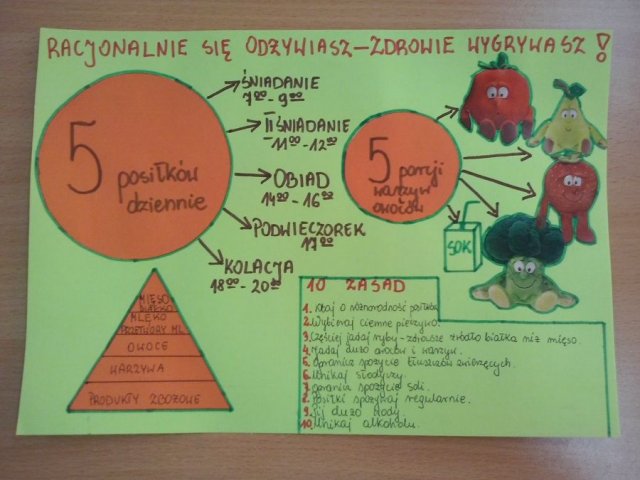 RACJONALNIE SIĘ ODŻYWIASZ – ZDROWIE WYGRYWASZ!
5 posiłków
dziennie
ŚNIADANIE
7⁰⁰ - 9⁰⁰
II ŚNIADANIE
11⁰⁰ - 12⁰⁰
OBIAD
14⁰⁰ - 16⁰⁰
PODWIECZOREK
17⁰⁰
KOLACJA
18⁰⁰ - 20⁰⁰
5 porcji
warzyw
owoców
SOK
MIĘSO
MLEKO
PRZETWORY ML.
OWOCE
WARZYWA
PRODUKTY ZBOŻOWE
10 ZASAD
1. Dbaj o różnorodność posiłków
2. Wybieraj ciemne pieczywo.
3. Częściej jadaj ryby - zdrowsze źródło białka niż mięso.
4. Jadaj dużo owoców i warzyw.
5. Ogranicz spożycie tłuszczów zwierzęcych.
6. Unikaj słodyczy.
7. Ogranicz spożycie soli.
8. Posiłki spożywaj regularnie.
9. Pij dużo wody.
10. Unikaj alkoholu.